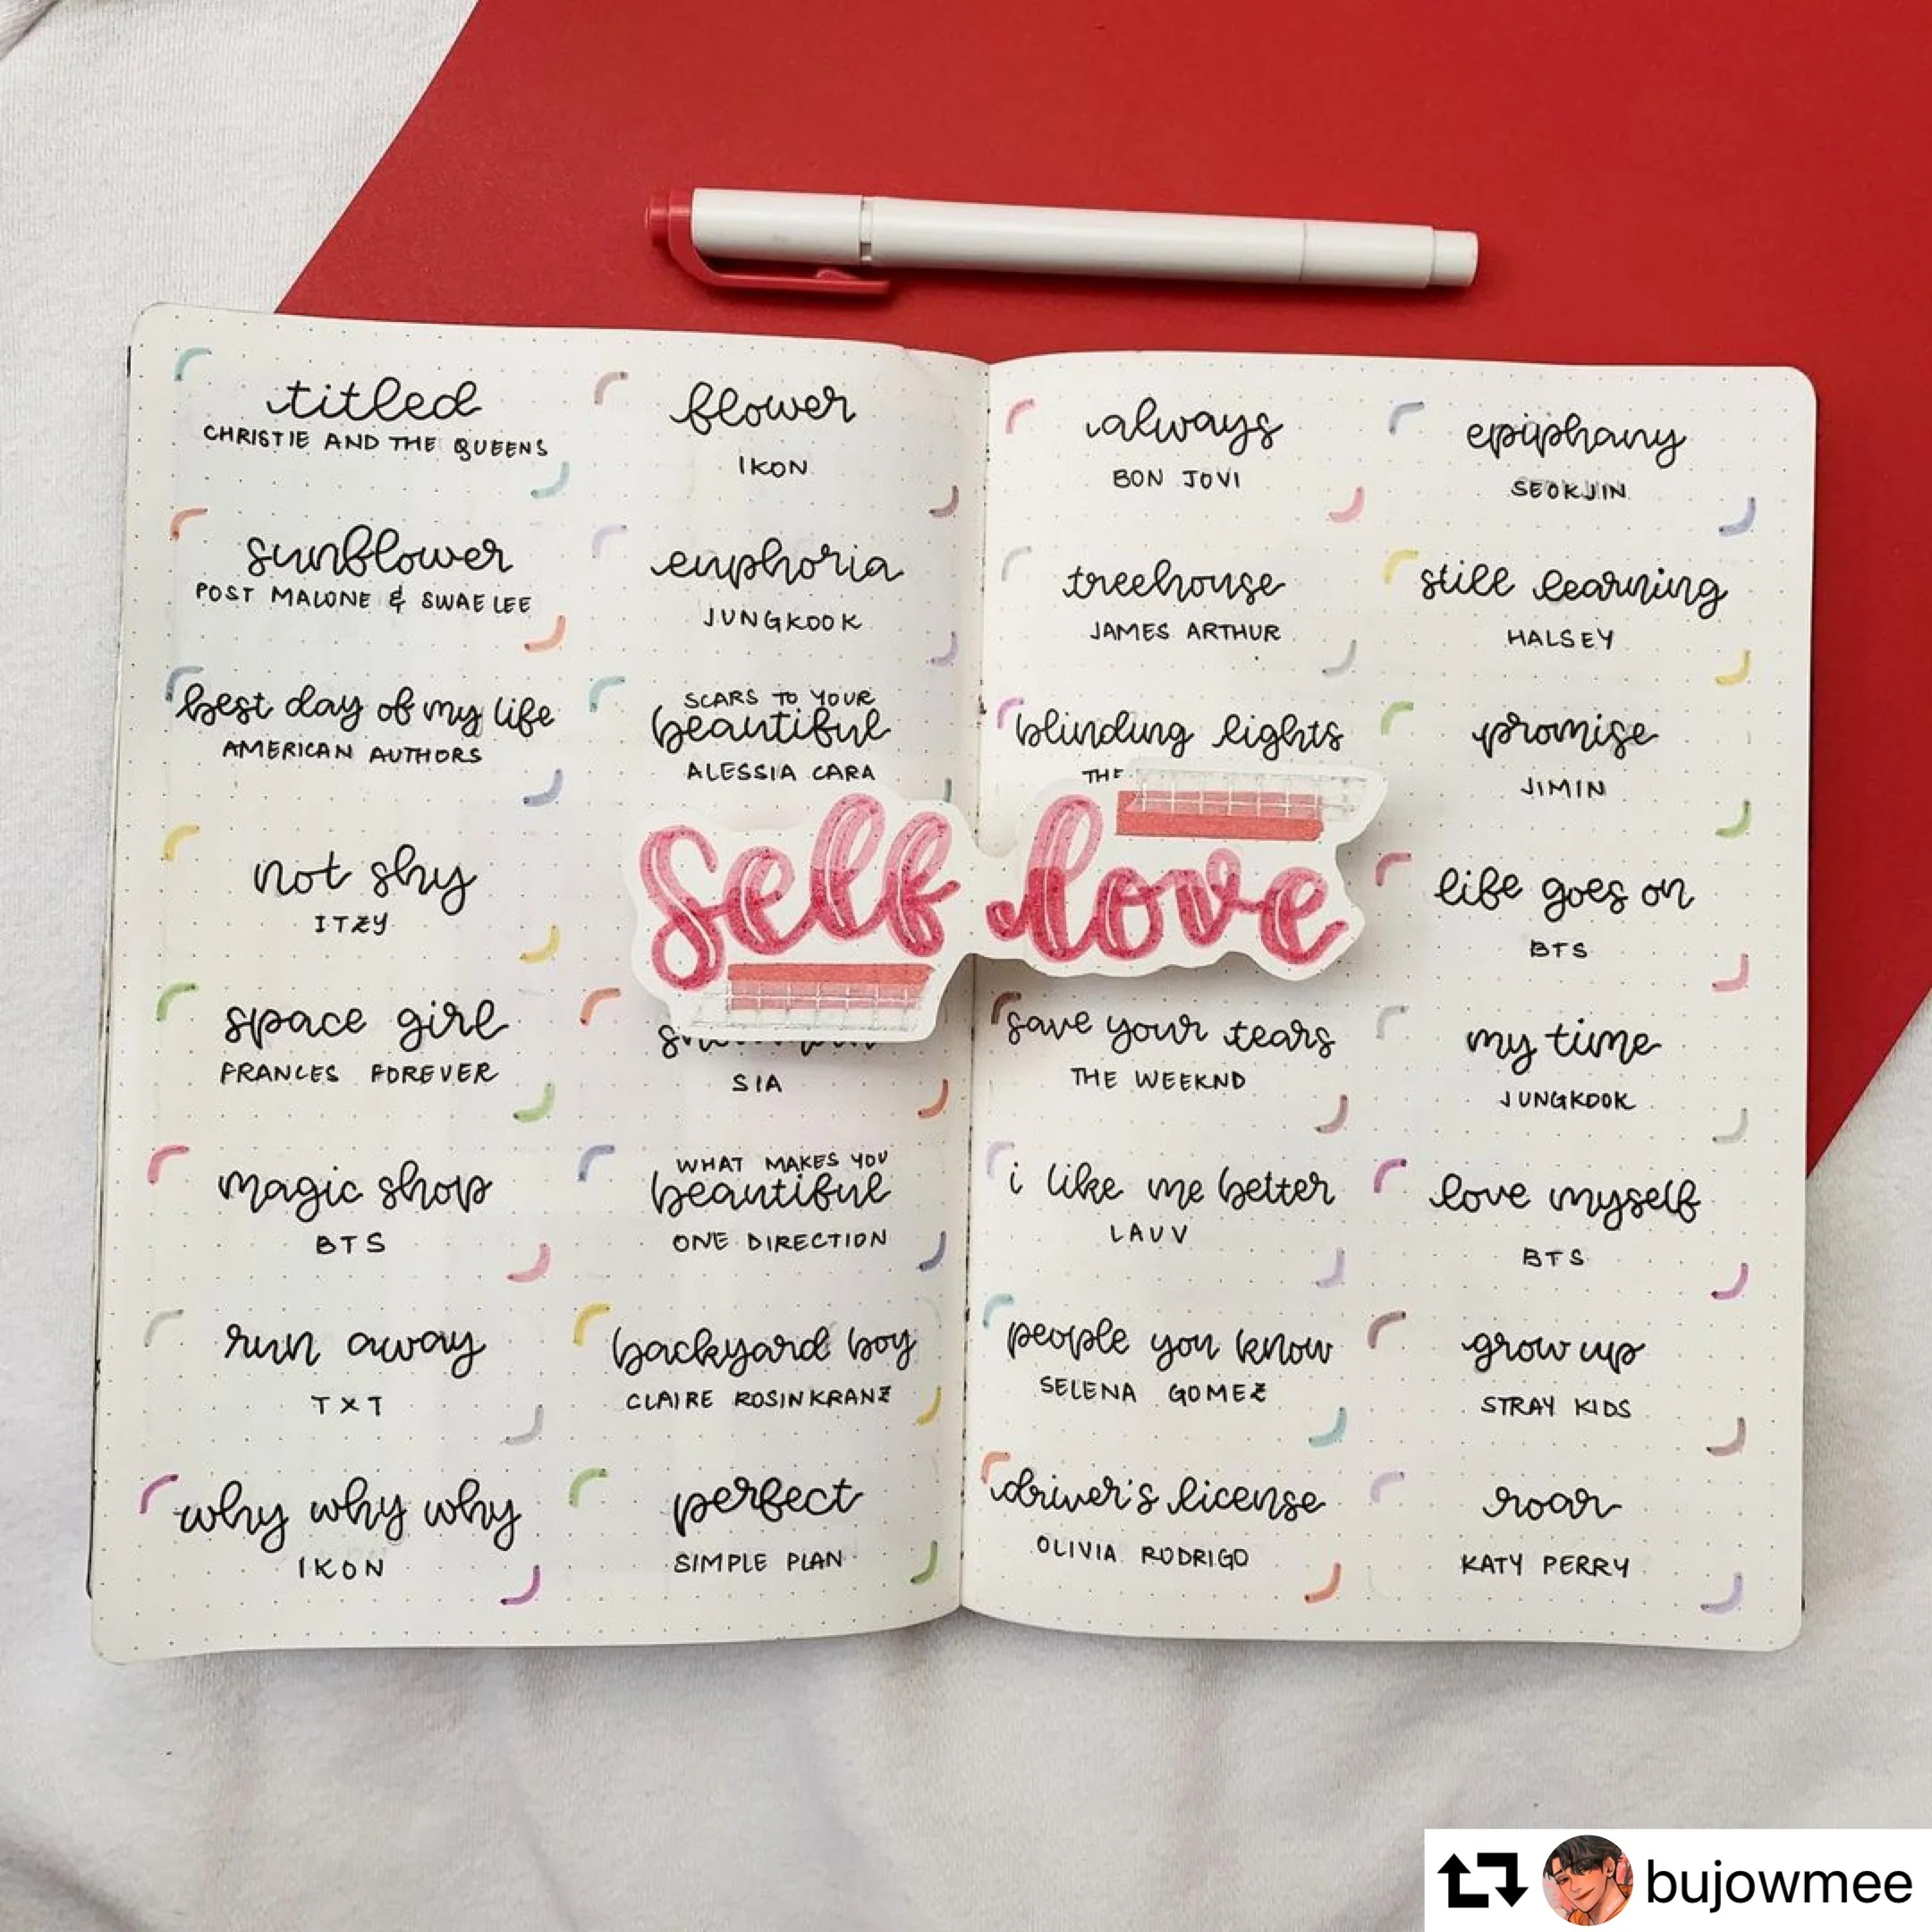 titled
CHRISTIE AND THE QUEENS
sunflower
POST MALONE & SWAE LEE
best day of my life
AMERICAN AUTHORS
not shy
ITZY
space girl
FRANCES FOREVER
magic shop
BTS
run away
TXT
why why why
IKON
flower
IKON
euphoria
JUNGKOOK
SCARS TO YOUR
beautiful
ALESSIA CARA
self love
SIA
WHAT MAKES YOU
beautiful
ONE DIRECTION
backyard boy
CLAIRE ROSINKRANZ
perfect
SIMPLE PLAN
always
BON JOVI
treehouse
JAMES ARTHUR
blinding lights
THE
save your tears
THE WEEKND
i like me better
LAUV
people you know
SELENA GOMEZ
driver's license
OLIVIA RODRIGO
epiphany
SEOKJIN
still learning
HALSEY
promise
JIMIN
life goes on
BTS
my time
JUNGKOOK
love myself
BTS
grow up
STRAY KIDS
roar
KATY PERRY
bujowmee